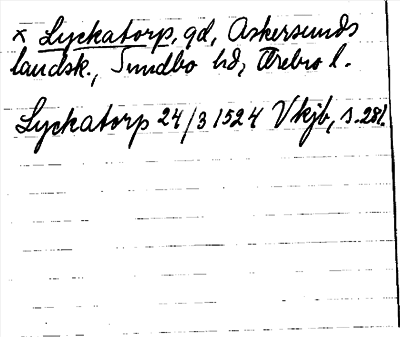 x Lyckatorp, gd, Askersunds
landsk., Sundbo hd, Örebro l.
Lyckatorp 24/3 1524 Vkjb, s. 281.